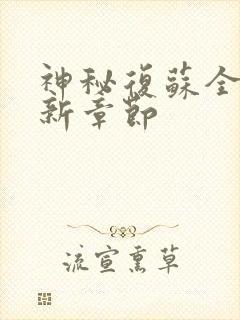 神秘復蘇全
新章節
流宣熏草